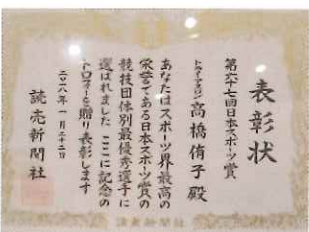 表彰状
第六十七回日本スポーツ賞
トライアスロン 高橋侑子 殿
あなたはスポーツ界最高の
栄誉である日本スポーツ賞の
競技団体別最優秀選手に
選ばれました ここに記念の
トロフィーを贈り表彰します
二〇一八年一月二十二日
読売新聞社
読売新聞社